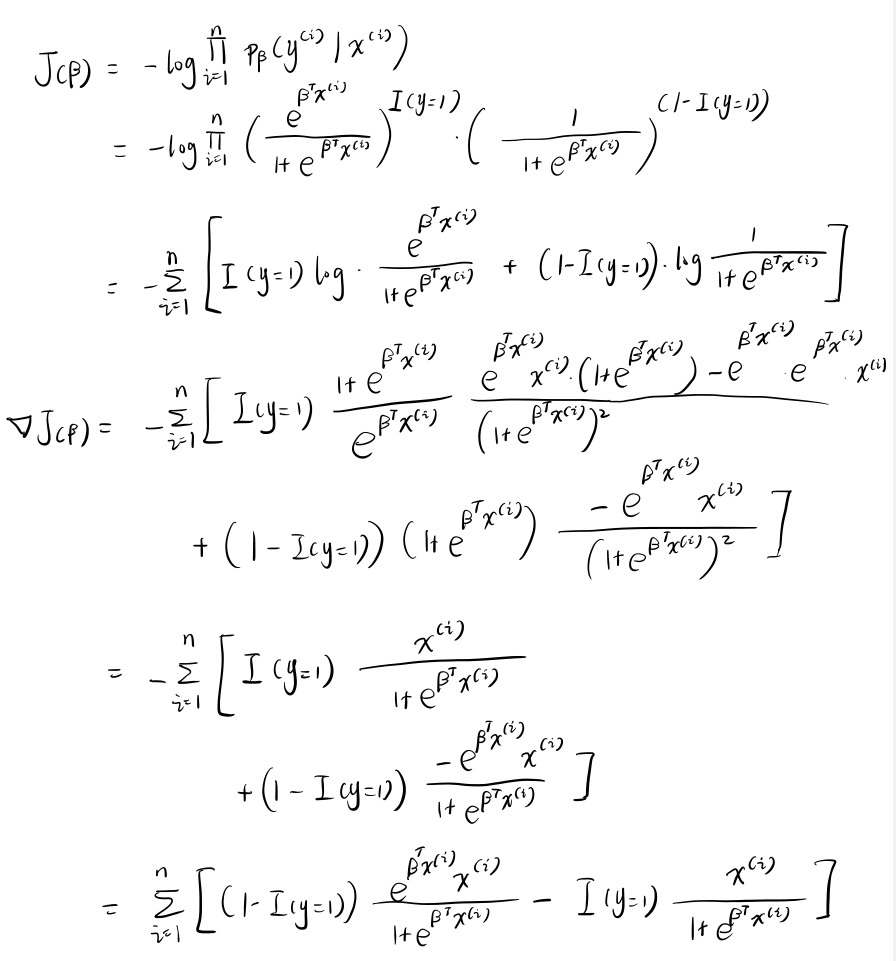 J(β) = -log ∏_{i=1}^{n} p_β(y^{(i)} | x^{(i)})
= -log ∏_{i=1}^{n} (\frac{e^{β^T x^{(i)}}}{1+e^{β^T x^{(i)}}})^{I(y=1)} · (\frac{1}{1+e^{β^T x^{(i)}}})^{(1-I(y=1))}
= -∑_{i=1}^{n} [I(y=1) log · \frac{e^{β^T x^{(i)}}}{1+e^{β^T x^{(i)}}} + (1-I(y=1)) · log \frac{1}{1+e^{β^T x^{(i)}}}]
∇J(β) = -∑_{i=1}^{n} [I(y=1) \frac{1+e^{β^T x^{(i)}}}{e^{β^T x^{(i)}}} \frac{e^{β^T x^{(i)}} x^{(i)} · (1+e^{β^T x^{(i)}}) - e^{β^T x^{(i)}} · e^{β^T x^{(i)}} · x^{(i)}}{(1+e^{β^T x^{(i)}})^2}
+ (1-I(y=1)) (1+e^{β^T x^{(i)}}) \frac{-e^{β^T x^{(i)}} x^{(i)}}{(1+e^{β^T x^{(i)}})^2}]
= -∑_{i=1}^{n} [I(y=1) \frac{x^{(i)}}{1+e^{β^T x^{(i)}}}
+ (1-I(y=1)) \frac{-e^{β^T x^{(i)}} x^{(i)}}{1+e^{β^T x^{(i)}}}]
= ∑_{i=1}^{n} [(1-I(y=1)) \frac{e^{β^T x^{(i)}} x^{(i)}}{1+e^{β^T x^{(i)}}} - I(y=1) \frac{x^{(i)}}{1+e^{β^T x^{(i)}}}]